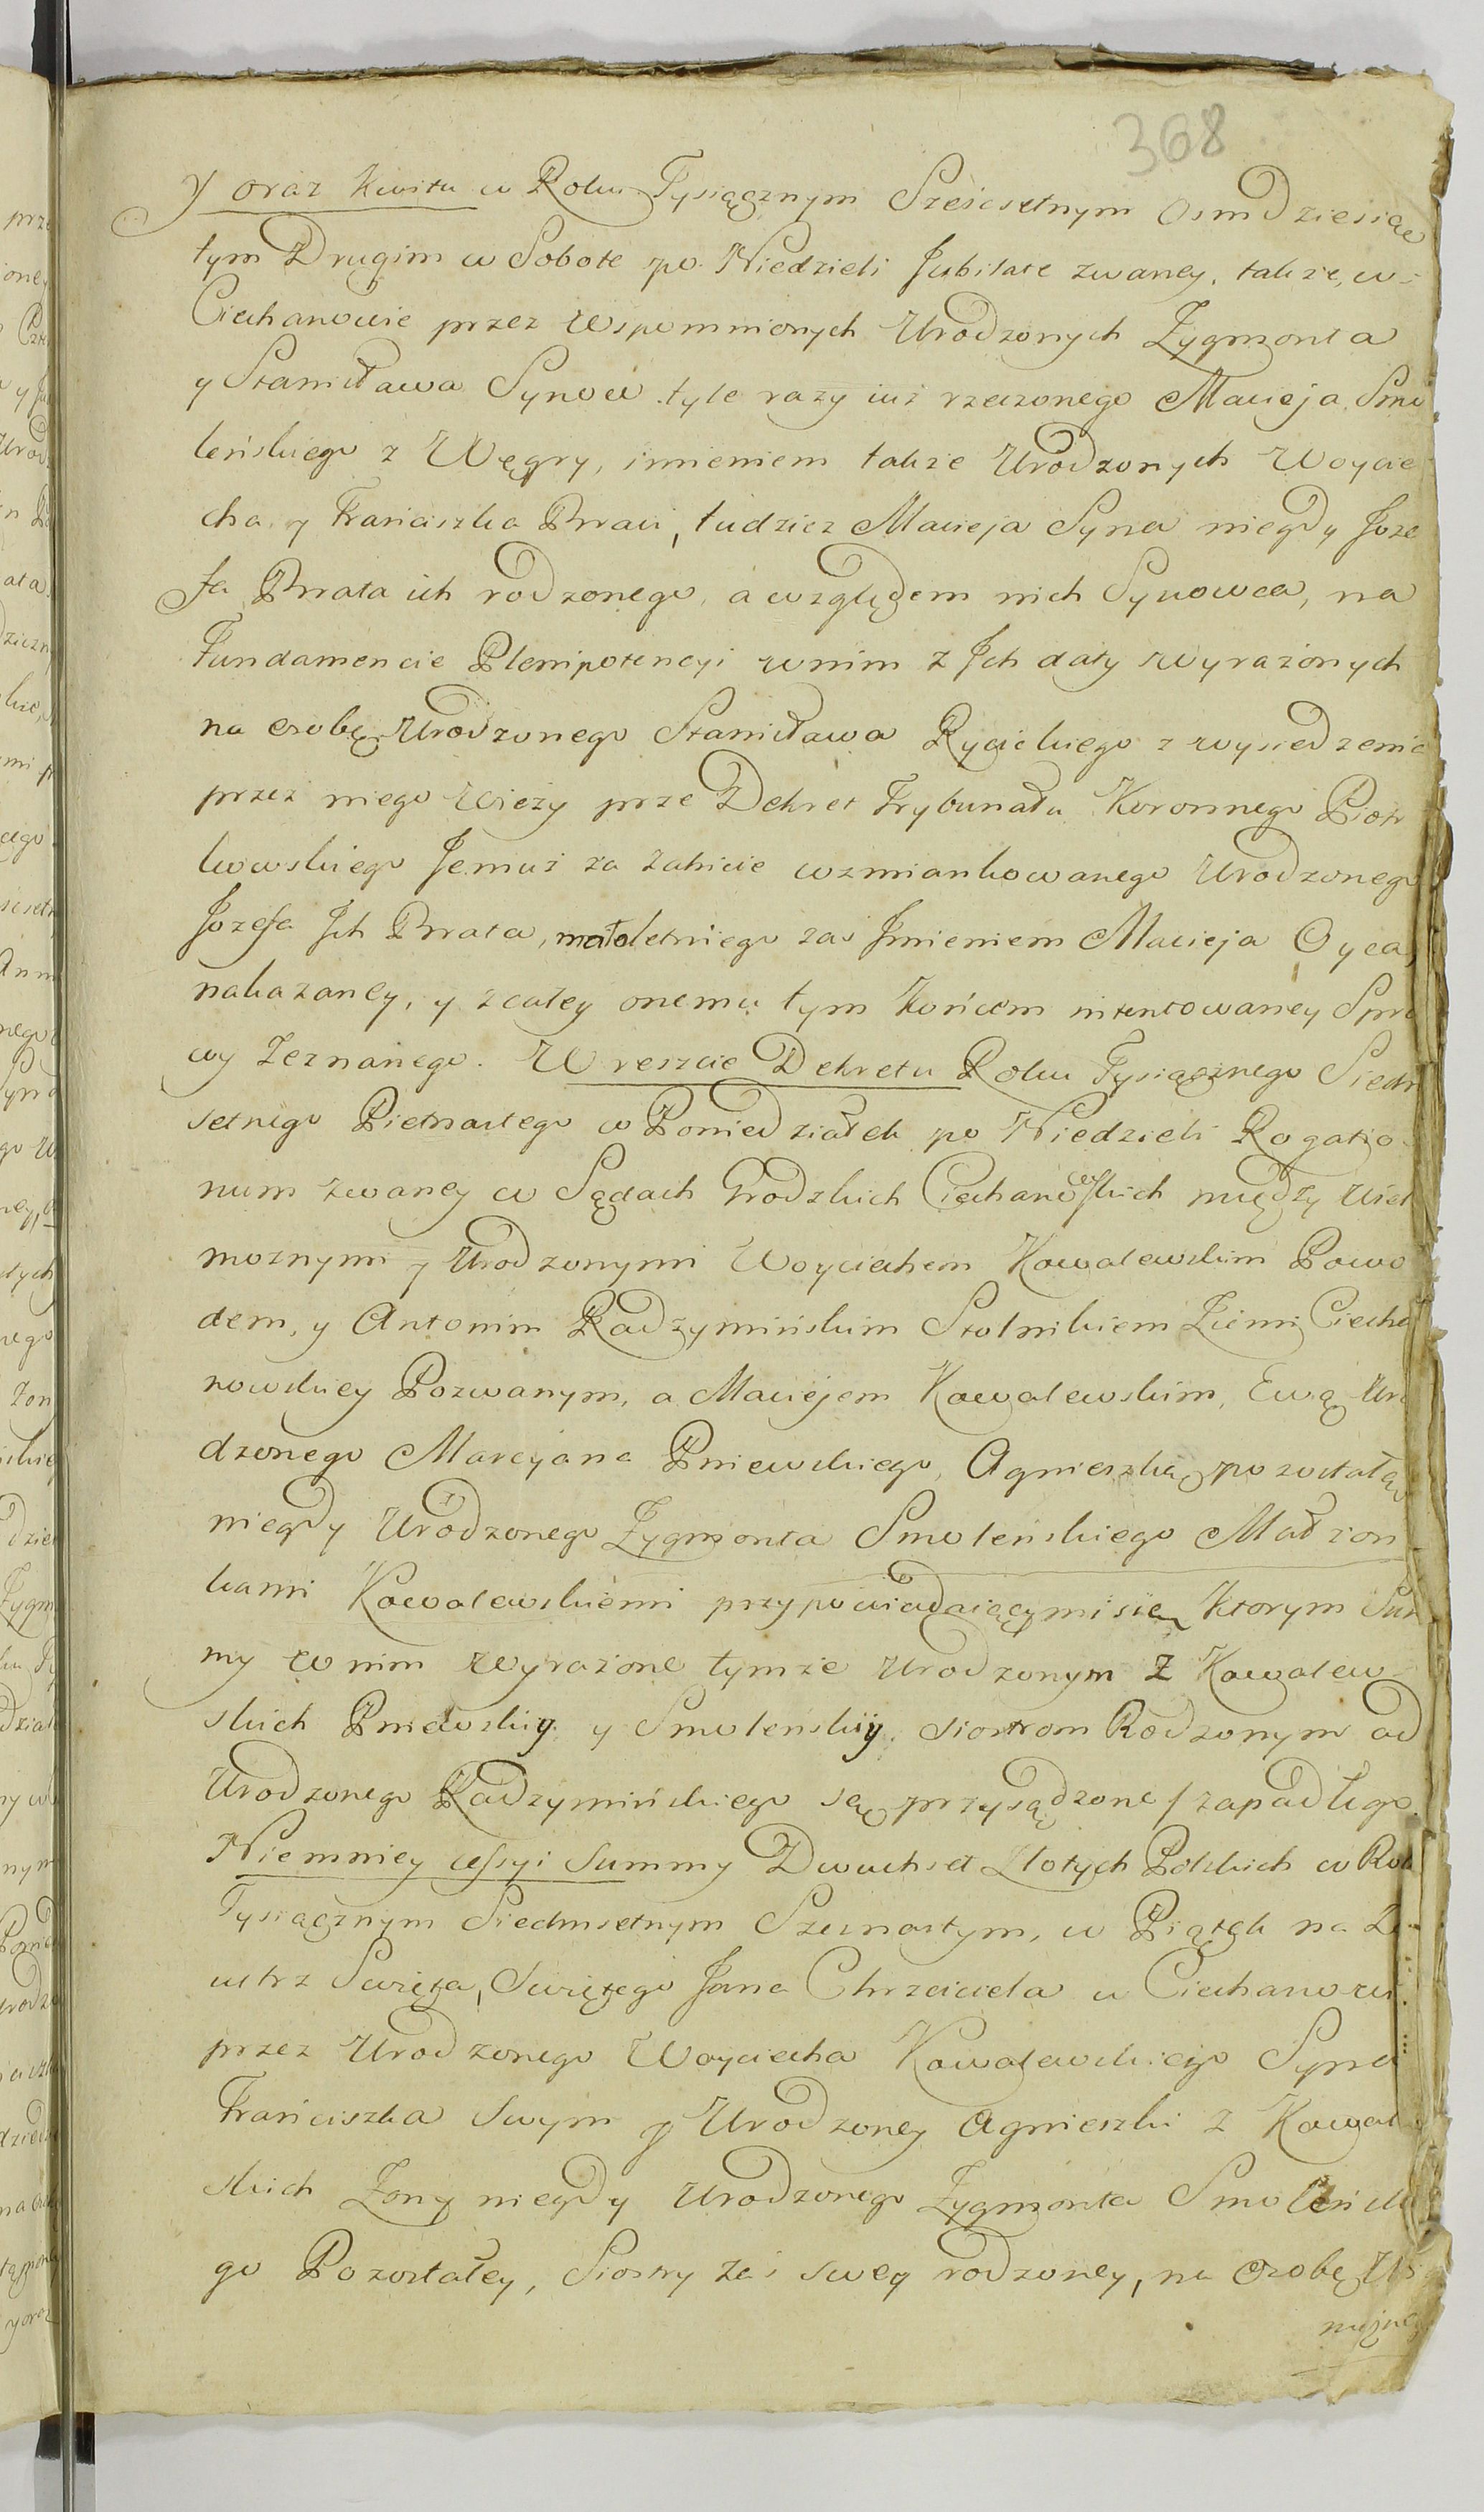 368
y oraz kwitu w Roku Tysiącznym Sześcsetnym Osmdziesią
tym Drugim w Sobote po Niedzieli Jubilate zwaney, także, w
Ciechanowie przez Wspomnionych Urodzonych Zygmonta
y Stanisława Synow tyle razy iuż rzeczonego Macieja Smo
leńskiego z Węgry, imieniem także Urodzonych Woycie
cha, y Franciszka Braci, tudzież Macieja Syna niegdy Joze
fa Brata ich rodzonego, a względem nich Synowca, na
Fundamencie Plenipotencyi w nim z Ich daty wyrażonych
na osobę Urodzonego Stanisława Rycickiego z wysiedzenia
przez niego Wieży prze Dekret Trybunału Koronnego Piotr
kowskiego Jemuż za Zabicie wzmiankowanego Urodzonego
Jozefa Ich Brata, małoletniego zaś Imieniem Macieja Oyca,
nakazaney, y z całey onemu tym Końcem intentowaney Spra
wy Zeznanego. W reszcie Dekretu Roku Tysiącznego Siedm
setnego Pietnastego w Poniedziałek po Niedzieli Rogatio
num zwaney w Sądach Grodzkich Ciechanowskich między Wiel
moznymi y Urodzonymi Woyciechem Kowalewskim Powo
dem, y Antonim Radzymińskim Stolnikiem Ziemi Ciecha
nowskiey Pozwanym, a Maciejem Kowalewskim, Ewą Uro
dzonego Marcyana Pniewskiego, Agnieszką pozostałą
niegdy Urodzonego Zygmonta Smoleńskiego Małżon
kami Kowalewskiemi przypowiadaiącymi się, ktorym Sum
my w nim wyrażone tymże Urodzonym Z Kowalew
skich Pniewskiy y Smoleńskiy siostrom Rodzonym od
Urodzonego Radzymińskiego są przysądzone / zapadłego.
Niemniey cessyi Summy Dwuchset Złotych Polskich w Roku
Tysiącznym Siedmsetnym Szesnastym, w Piątek na Za
iutrz Święta, Świętego Jana Chrzciciela w Ciechanowie
przez Urodzonego Woyciecha Kowalewskiego Syna
Franciszka Swym y Urodzoney Agnieszki z Kowalew
skich Żony niegdy Urodzonego Zygmonta Smoleńskie
go Pozostałey, Siostry zaś swey rodzoney, na Osobę